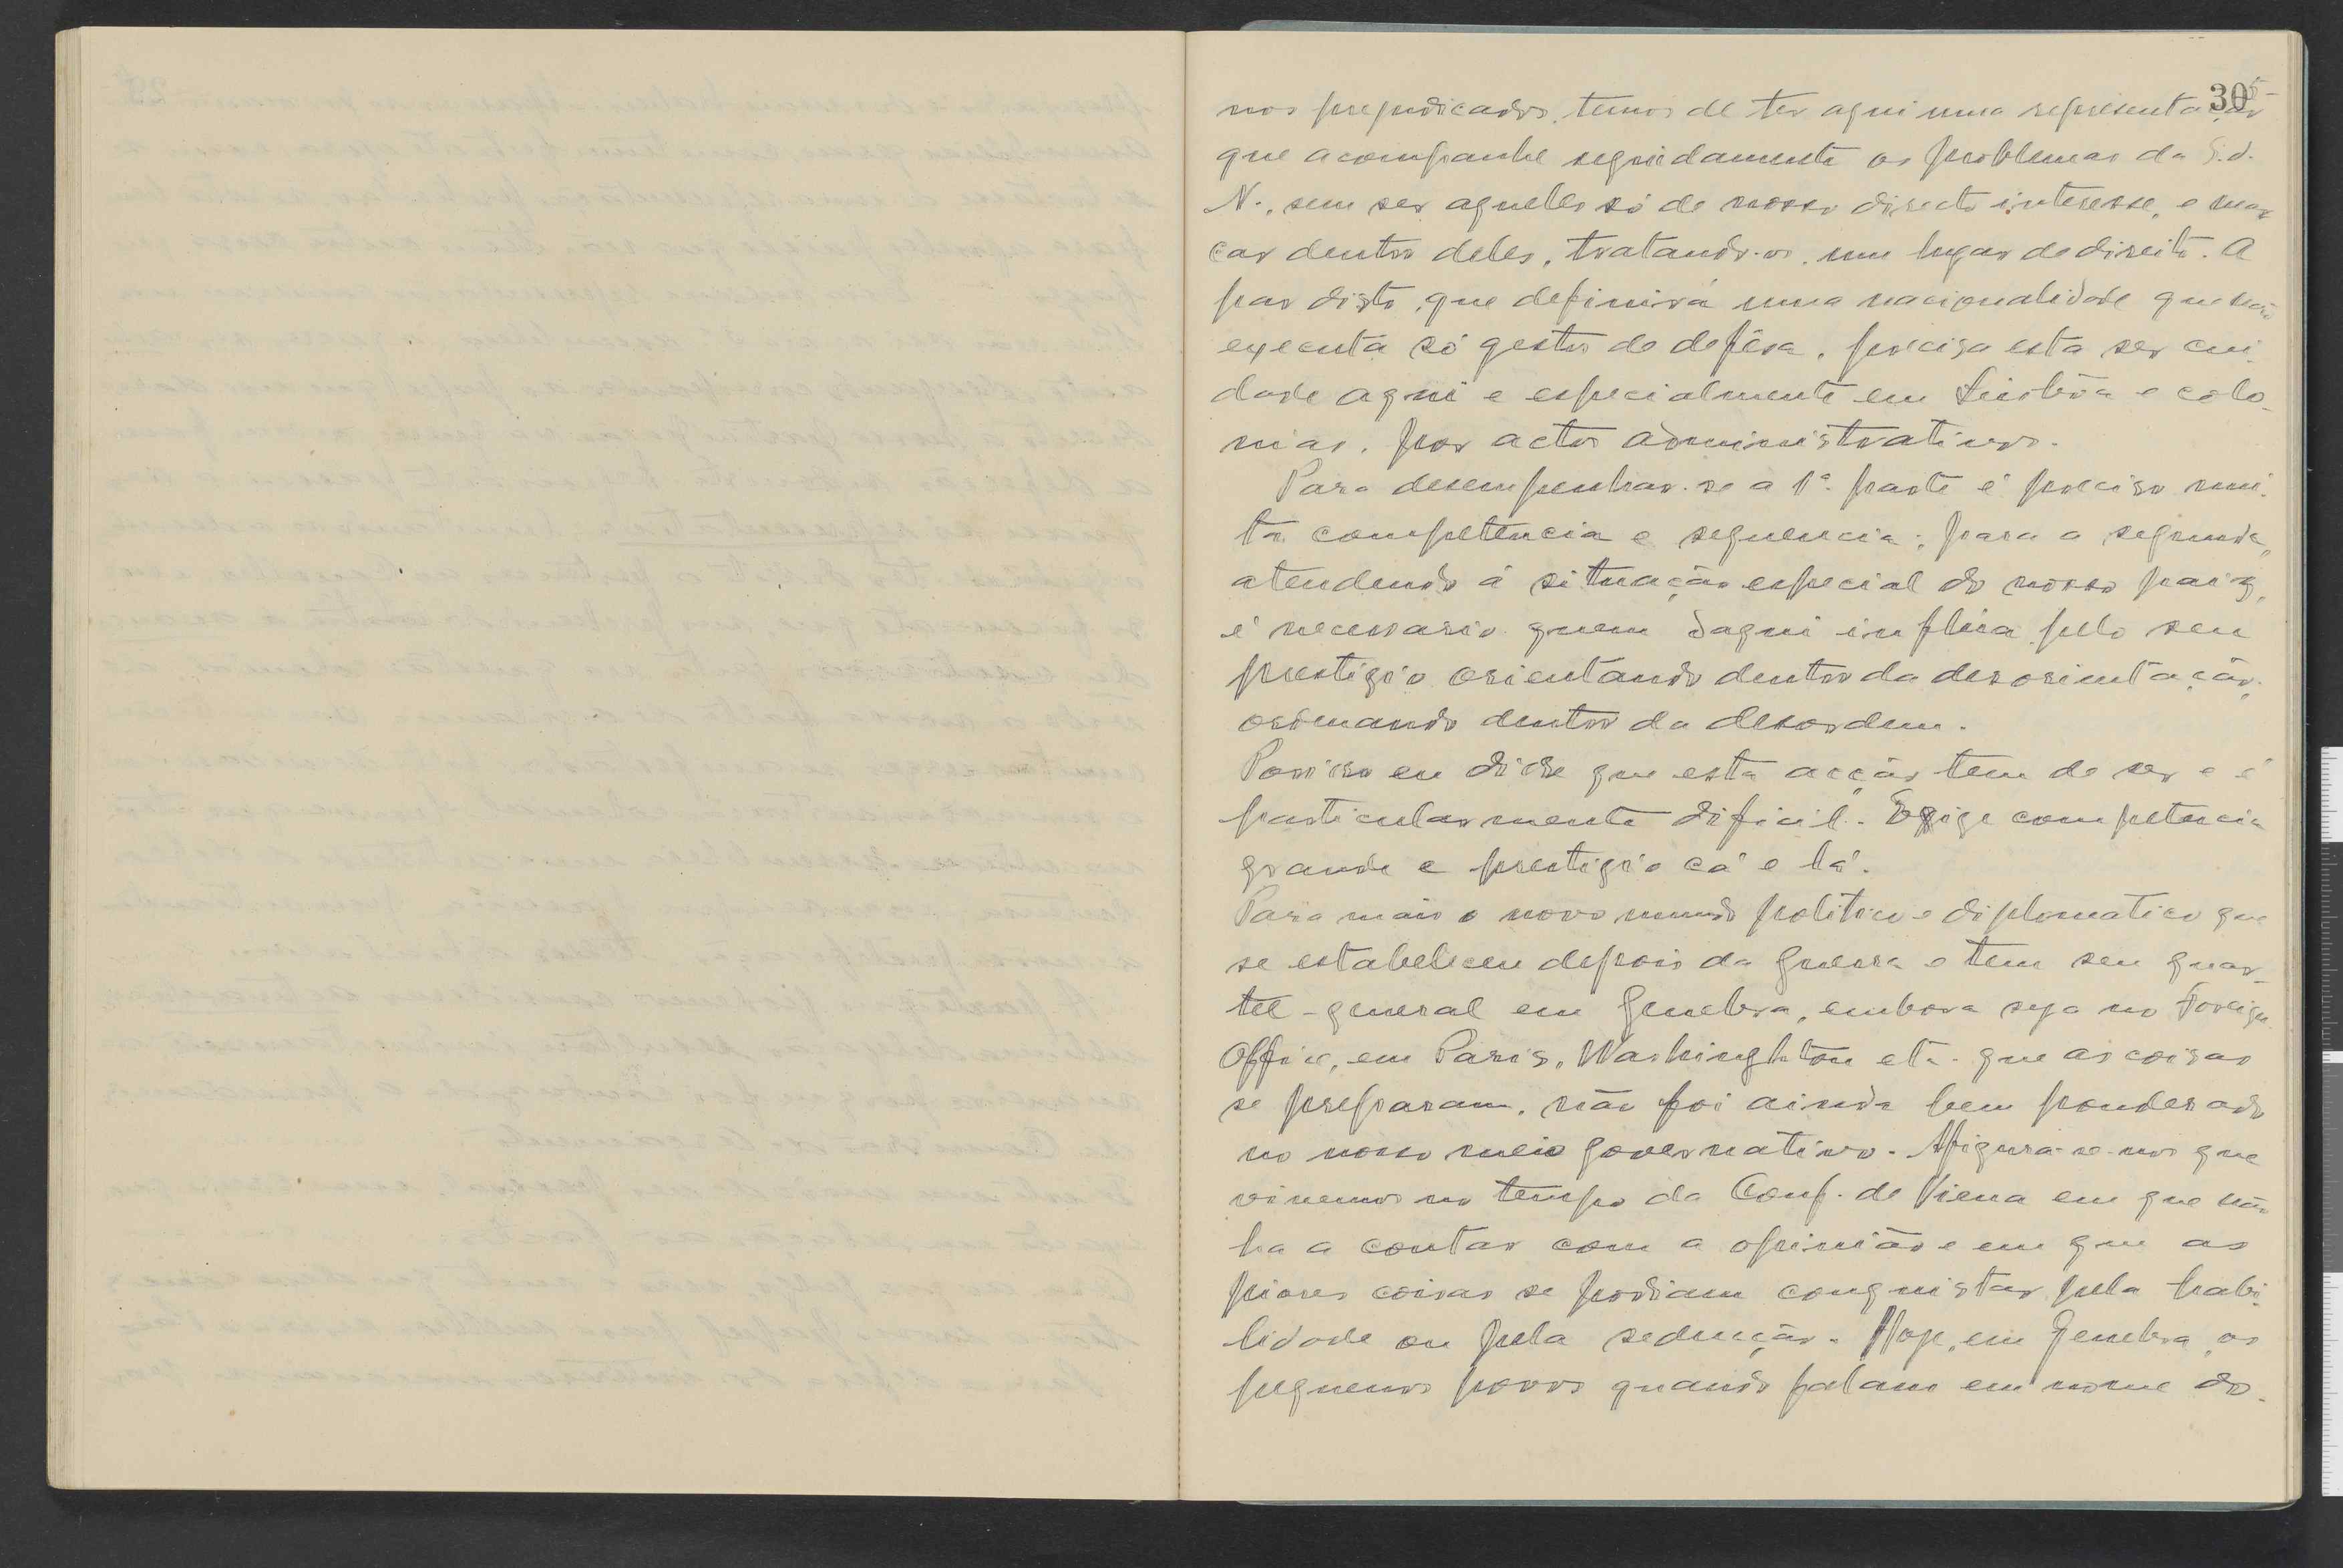 30
nos prejudicados, temos de ter aqui uma representação
que acompanhe seguidamente os problemas da S. d.
N., sem ser aqueles só de nosso directo interesse, e mar
car dentro deles, tratando-os, um lugar de direito. A
par disto, que definirá uma nacionalidade que não
executa só gestos de deféza, precisa esta ser cui
dada aqui e especialmente em Lisbôa e colo-
nias, por actos administrativos.
Para desempenhar-se a 1ª parte é preciso mui-
ta competencia e sequencia; para a segunda,
atendendo á situação especial do nosso paiz,
é necessario quem daqui inflúa pelo seu
prestigio orientando dentro da desorientação,
ordenando dentro da desordem.
Por isso eu disse que esta acção tem de ser e é
particularmente dificil. Exige competencia
grande e prestigio cá e lá.
Para mais o novo mundo politico e diplomatico que
se estabeleceu depois da guerra e tem seu quar-
tel-general em Genebra, embora seja no Foreign
Office, em Paris, Washinghton etc. que as coisas
se preparam, não foi ainda bem ponderado
no nosso meio governativo. Afigura-se-nos que
vivemos no tempo da Conf. de Viena em que não
ha a contar com a opinião e em que as
piores coisas se podiam conquistar pela habi-
lidade ou pela sedução. Hoje, em Genebra, os
pequenos povos quando falam em nome do